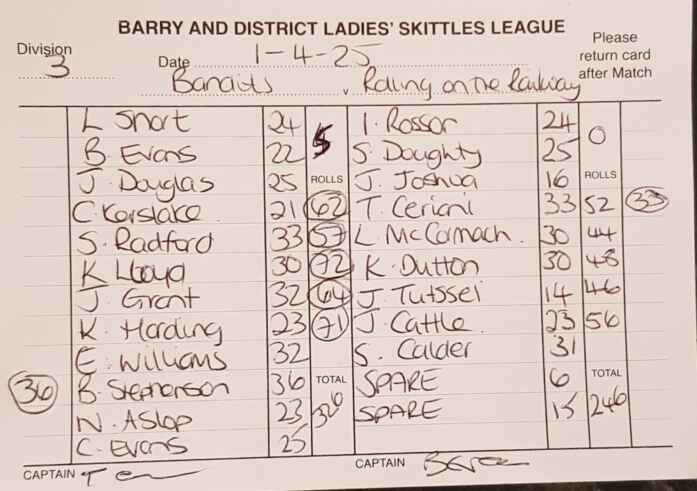 BARRY AND DISTRICT LADIES' SKITTLES LEAGUE
Please return card after Match
Division 3
Date 1-4-25
Bandits v. Rolling on the Railway
L Short 24 5 I. Rossor 24 0
B. Evans 22 S. Doughty 25
J. Douglas 25 ROLLS J. Joshua 16 ROLLS
C. Kerslake 21 62 T. Ceriani 33 52 33
S. Radford 33 57 L. McCormach. 30 44
K Lloyd 30 72 K. Dutton 30 48
J. Grant 32 64 J. Tutssel 14 46
K. Harding 23 71 J. Cattle. 23 56
E. Williams 32 S. Calder 31
36 B. Stephenson 36 TOTAL SPARE 6 TOTAL
N. Aslop 23 326 SPARE 15 246
C. Evans 25
CAPTAIN CAPTAIN